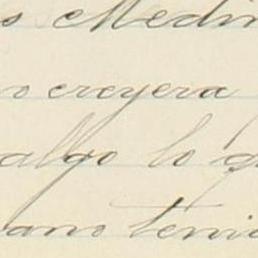 s Medin
o creyera
algo lo q
ano teni